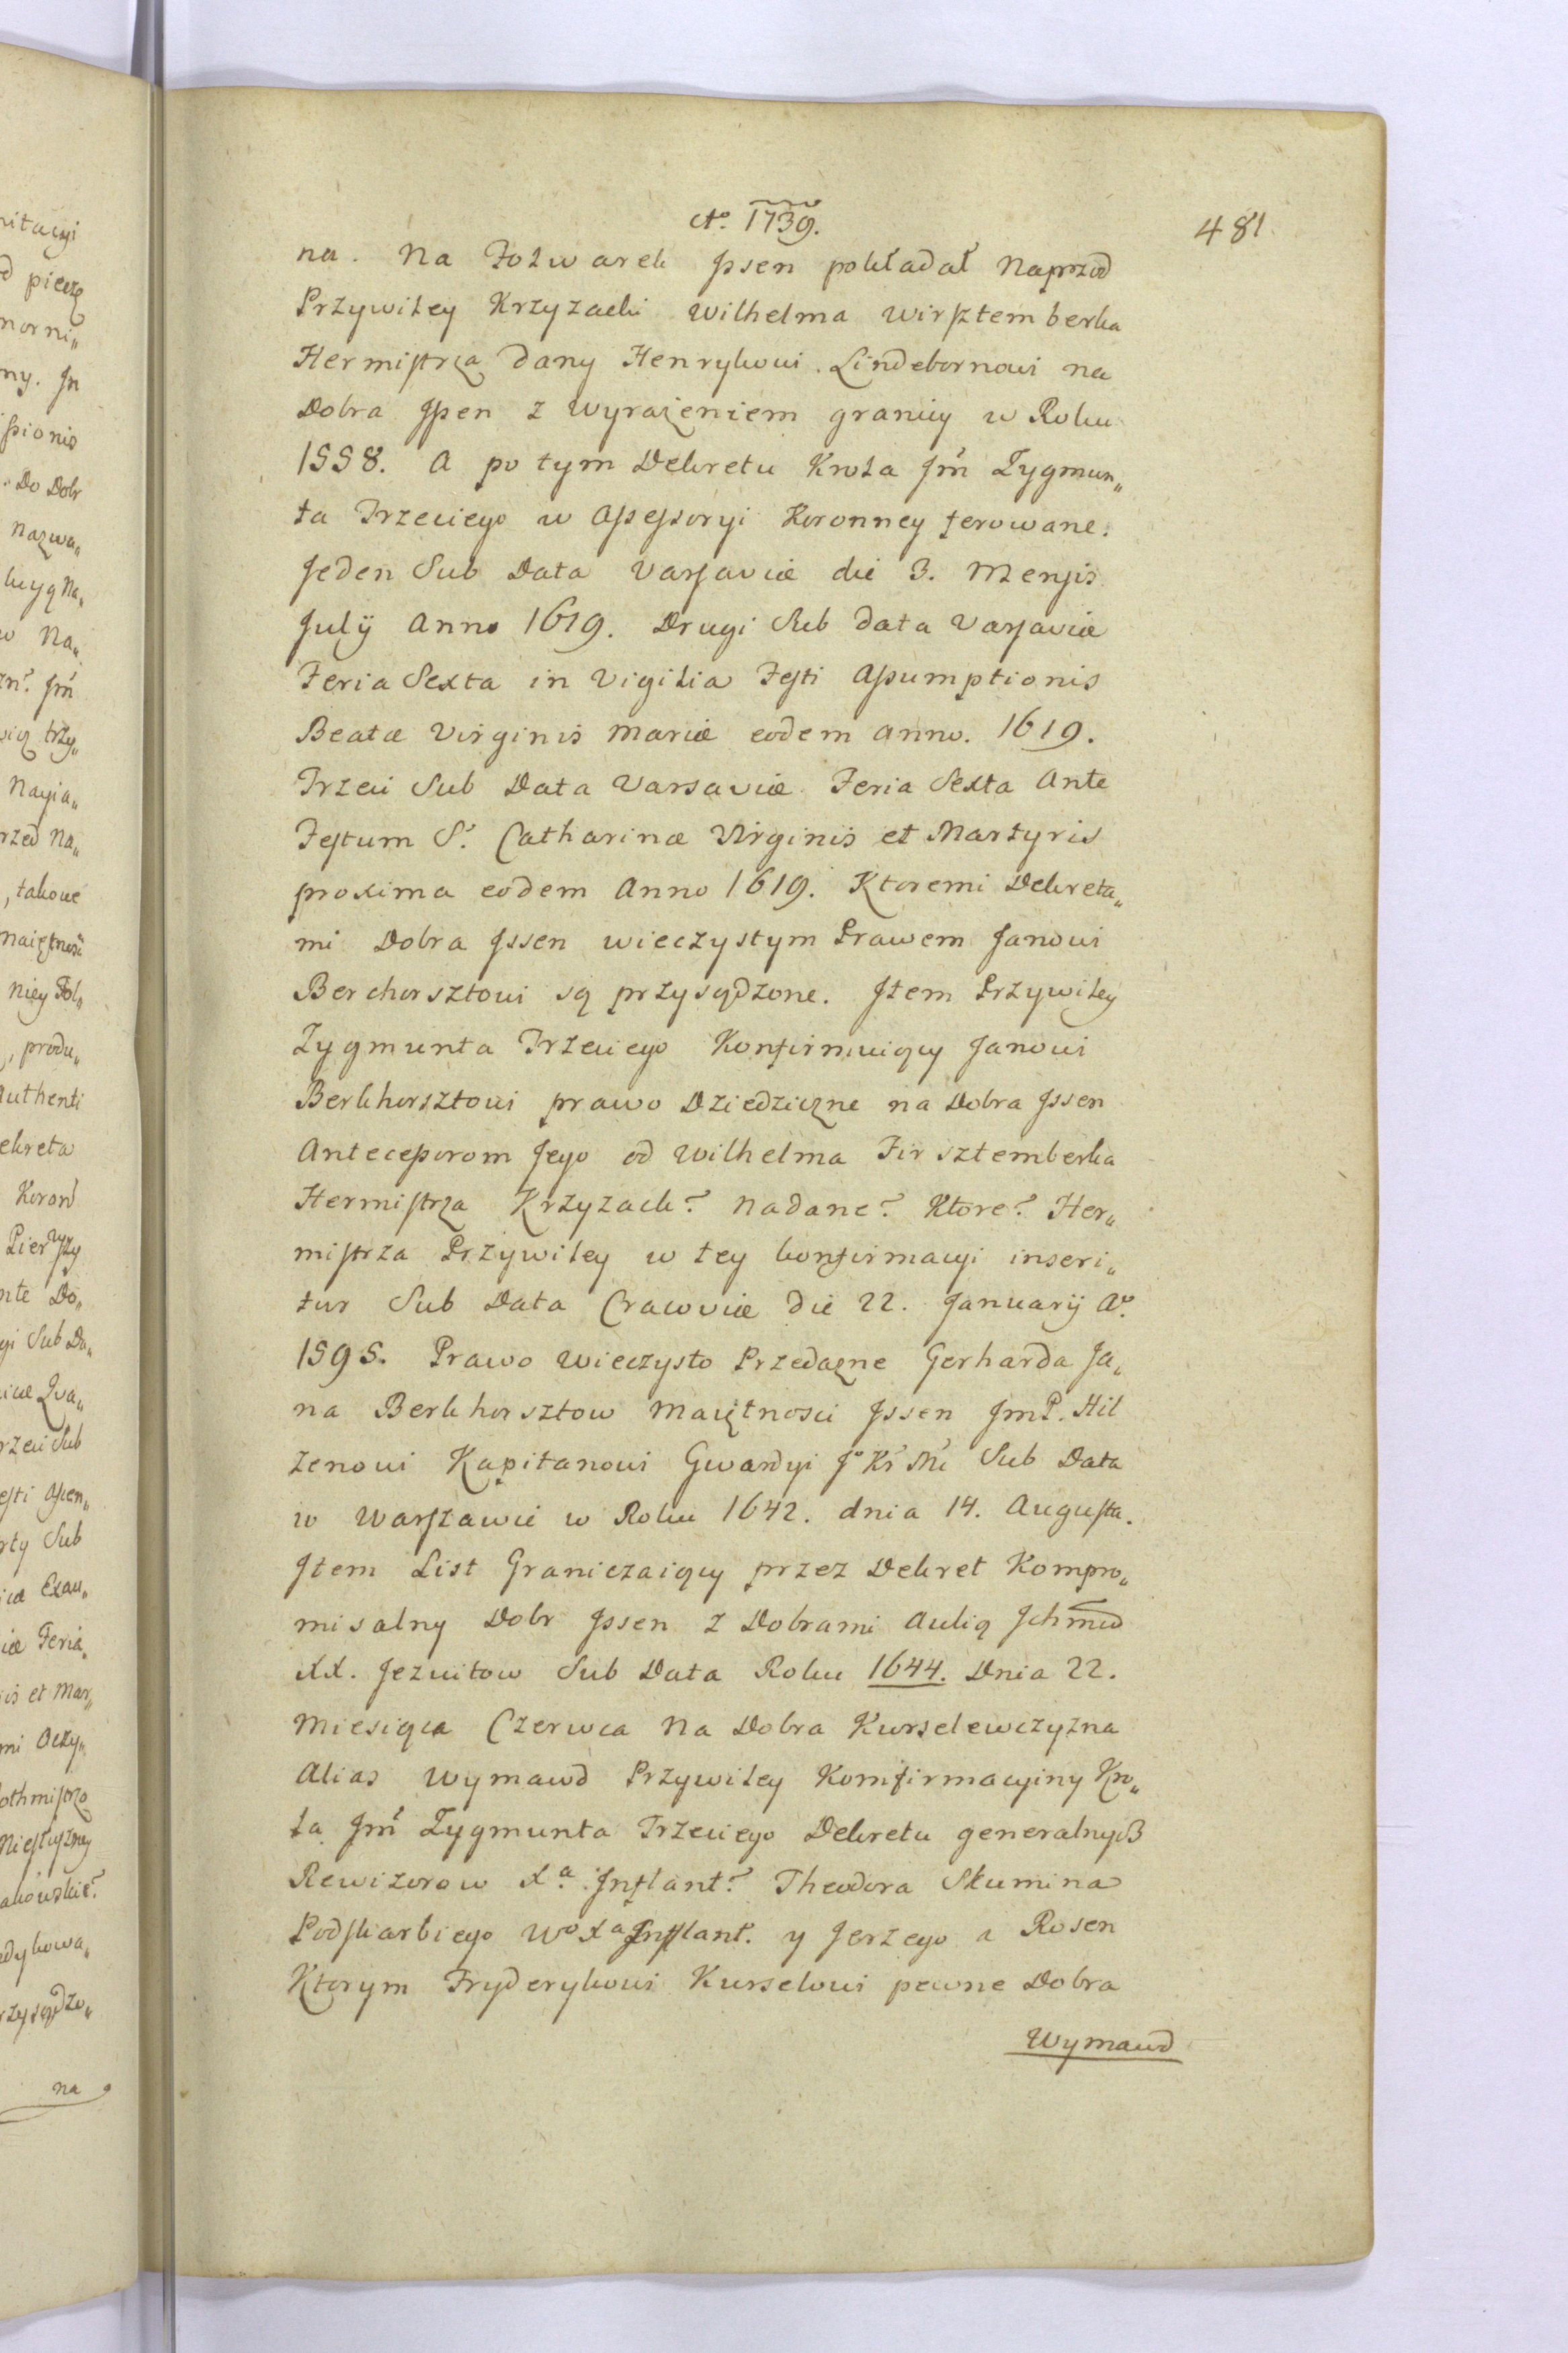 Aº. 1739.
481.
na. Na Folwarek Jssen pokładał Naprzod
Przywiley Krzyzacki Wilhelma Wirsztemberka
Hermistrza dany Henrykowi Lindebornowi na
Dobra Jssen z wyrażeniem granicy w Roku
1558. A po tym Dekreta Krola Jm̃ Zygmun„
ta Trzeciego w Assessoryi Koronney ferowane.
Jeden Sub Data Varsaviæ die 3. Mensis
Julÿ Anno 1619. Drugi Sub data Varsaviæ
Feria Sexta in Vigilia Festi Assumptionis
Beatæ Virginis Mariæ eodem Anno. 1619.
Trzeci Sub Data Varsaviæ Feria Sexta Ante
Festum S. Catharinæ Virginis et Martyris
proxima eodem Anno 1619. Ktoremi Dekreta„
mi Dobra Jssen wieczystym Prawem Janowi
Berchorsztowi są przysądzone. Jtem Przywiley
Zygmunta Trzeciego Konfirmuiący Janowi
Berkhorsztowi prawo Dziedziczne na Dobra Jssen
Antecessorom Jego od Wilhelma Firsztemberka
Hermistrza Krzyzack? Nadane? Ktore? Her„
mistrza Przywiley w tey konfirmacyi inseri„
tur Sub Data Cracoviæ die 22. Januarÿ Aº.
1595. Prawo wieczysto Przedażne Gerharda Ja„
na Berkhorsztow Maiętnosci Jssen JmP. Hil
zenowi Kapitanowi Gwardyi Jº Kr Mci Sub Data
w Warszawie w Roku 1642. dnia 14. Augusta.
Jtem List Graniczaiący przez Dekret Kompro„
misalny Dobr Jssen z Dobrami Aulią Jchmciow
XX. Jezuitow Sub Data Roku 1644. Dnia 22.
Miesiąca Czerwca Na Dobra Kurselewczyzna
Alias Wymawd Przywiley Komfirmacyiny Kro„
la Jm̃ Zygmunta Trzeciego Dekretu generalnych
Rewizorow Xª. Jnflant? Theodora Skumina
Podskarbiego Wº Xª Jnflant. y Jerzego a Rosen
Ktorym Fryderykowi Kurselowi pewne Dobra
Wymawd
nitacyi
pieczę
morni„
ny. Jn
ssionis
Do Dobr
nazwa„
w Na„
Jm̃
trzy„
Nayia„
rzed Na„
, takowe
maiętność
niey Fol„
, produ„
Authenti
ekreta
Koron
Pierwszy
nte Do„
gi Sub Da„
rzeci Sub
esti Ascen„
rty Sub
Exau„
Feria
is et Mar„
mi Oczy„
othmistrzo
Niesłuszney
akowskie?
edykowa„
rzysądzo„
na